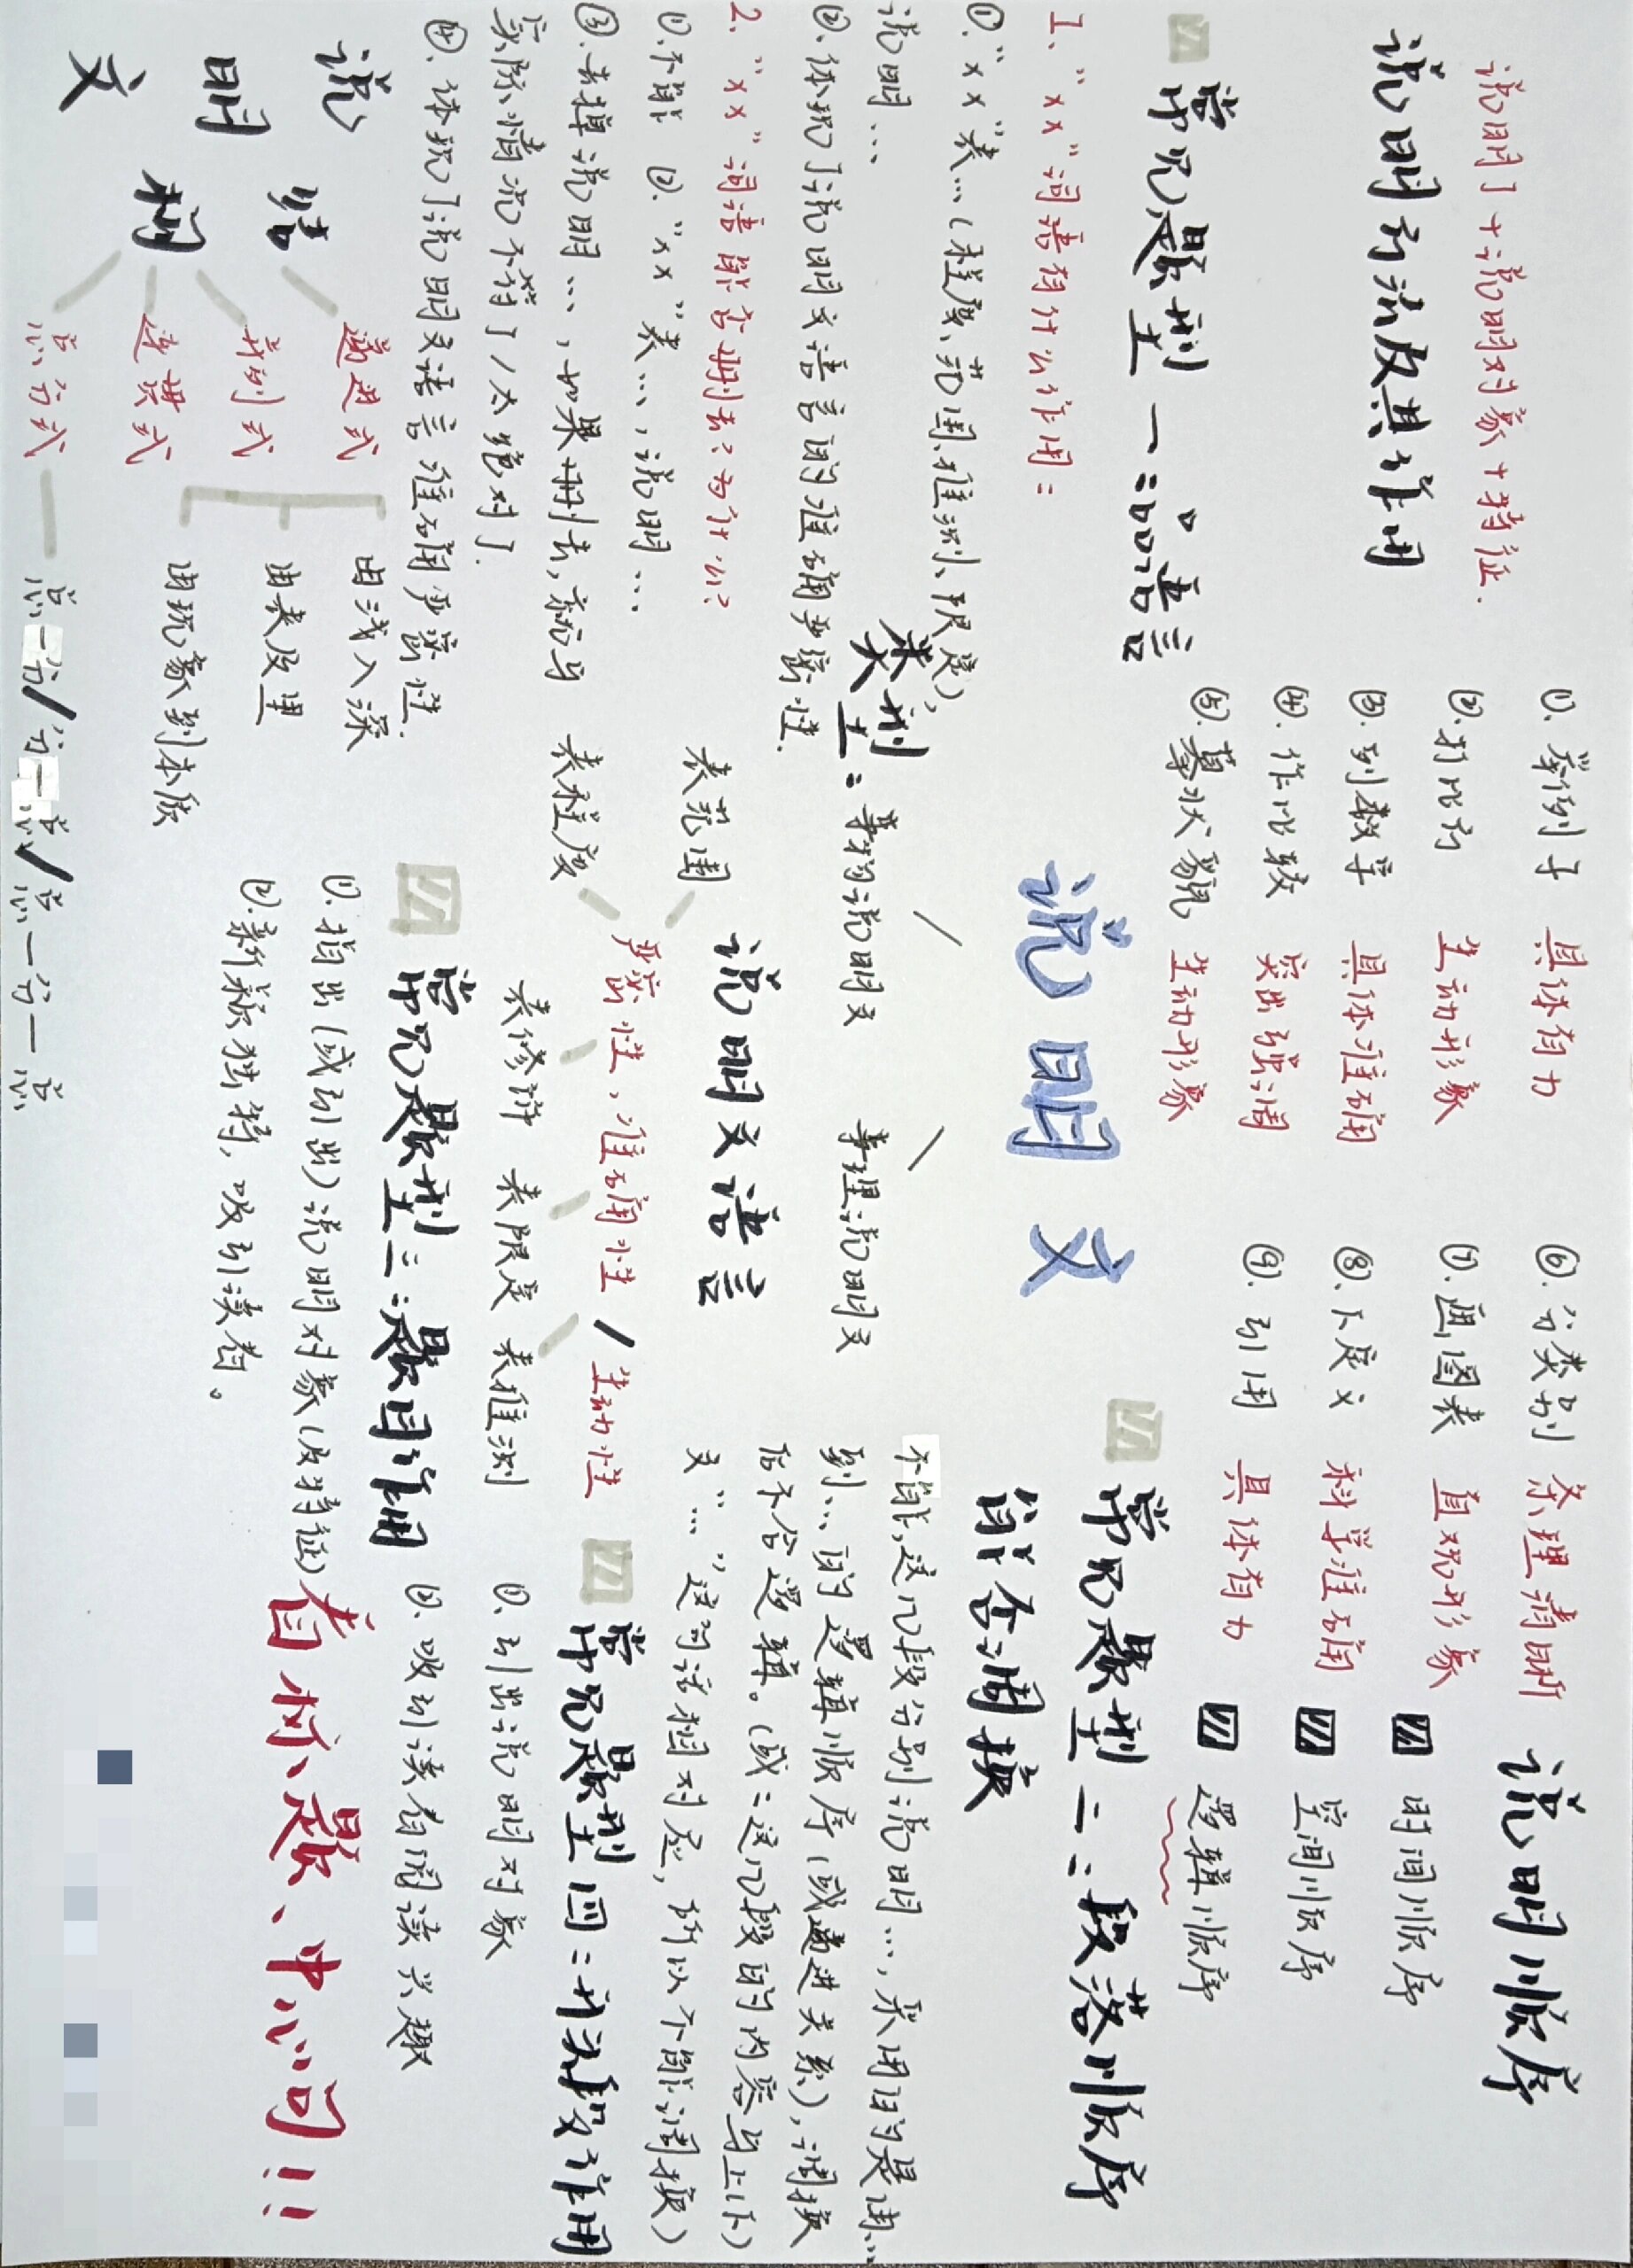 说明了+说明对象+特征.
说明方法及其作用
①. 举例子 具体有力
②. 打比方 生动形象
③. 列数字 具体准确
④. 作比较 突出强调
⑤. 摹状貌 生动形象
⑥. 分类别 条理清晰
⑦. 画图表 直观形象
⑧. 下定义 科学准确
⑨. 引用 具体有力
说明顺序
时间顺序
空间顺序
逻辑顺序
常见题型一:品语言
1、“xx”词语有什么作用:
①.“xx”表…(程度、范围、推测、限定),
说明…
②.体现了说明文语言的准确严密性.
2.“xx”词语能否删去?为什么?
①.不能 ②.“xx”表…,说明…
③.去掉说明…,如果删去,就与
实际情况不符了/太绝对了.
④.体现了说明文语言准确严密性.
说明文
类型:事物说明文 事理说明文
说明文语言
严密性,准确性/生动性
表范围
表程度
表修辞 表限定 表推测
常见题型二:段落顺序
能否调换
不能,这几段分别说明…,采用的是由…
到…的逻辑顺序(或递进关系),调换
后不合逻辑。(或:这几段的内容与上(下)
文“…”这句话相对应,所以不能调换)
说明文
结构
递进式
并列式
连贯式
总分式
由浅入深
由表及里
由现象到本质
总一分/分一总/总一分一总
常见题型三:题目作用
①.指出(或引出)说明对象(及特征)
②.新颖独特,吸引读者。
常见题型四:开头段作用
①.引出说明对象
②.吸引读者阅读兴趣
看标题、中心句!!